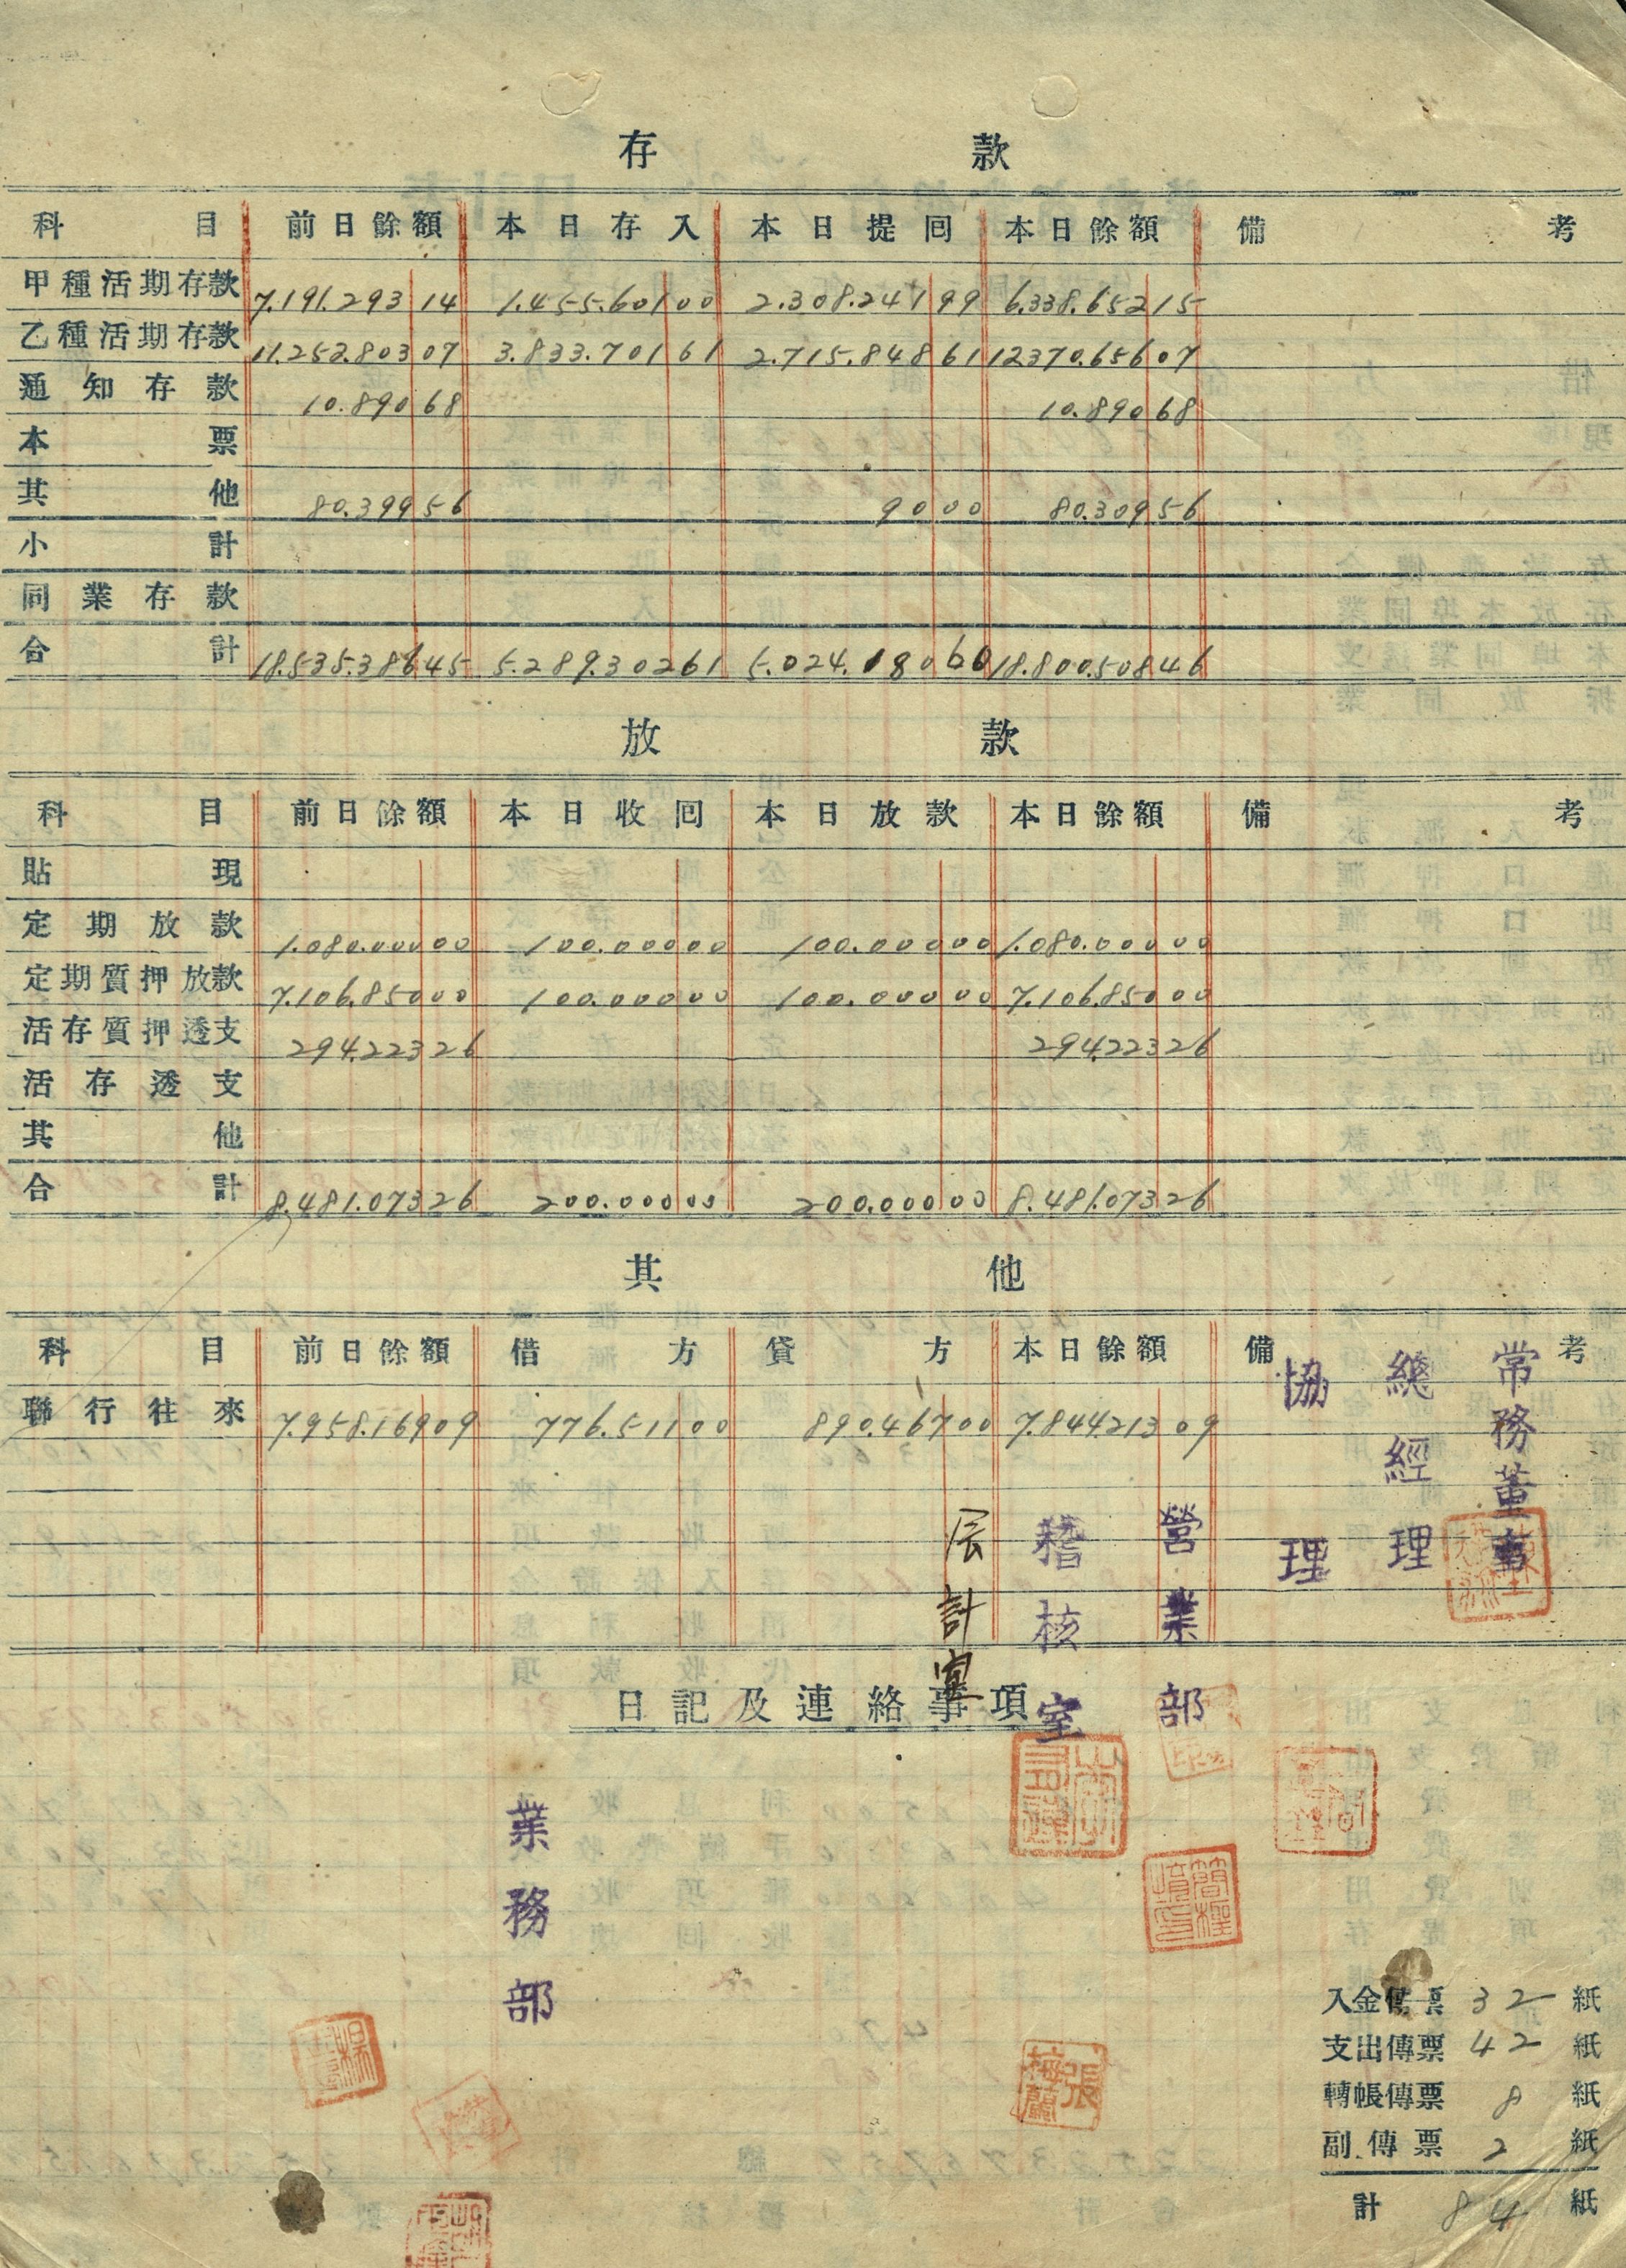 存款
科目 前日餘額 本日存入 本日提回 本日餘額 備考
甲種活期存款 7.191.293 14 1.455.601 00 2.308.241 99 6.338.652 15
乙種活期存款 11.252.803 07 3.833.701 61 2.715.848 61 12370.656 07
通知存款 10.890 68 10.890 68
本票
其他 80.399 56 90 00 80.309 56
小計
同業存款
合計 18.535.386 45 5.289.302 61 5.024.180 60 18.800.508 46
放款
科目 前日餘額 本日收回 本日放款 本日餘額 備考
貼現
定期放款 1.080.000 00 100.000 00 100.000 00 1.080.000 00
定期質押放款 7.106.850 00 100.000 00 100.000 00 7.106.850 00
活存質押透支 294.223 26 294.223 26
活存透支
其他
合計 8.481.073 26 200.000 00 200.000 00 8.481.073 26
其他
科目 前日餘額 借方 貸方 本日餘額 備考
聯行往來 7.958.169 09 776.511 00 890.467 00 7.844.213 09
常務董事
總經理
協理
營業部
稽核室
計室
日記及連絡事項
業務部
張梅蘭
入金傳票 32 紙
支出傳票 42 紙
轉帳傳票 8 紙
副傳票 2 紙
計 84 紙